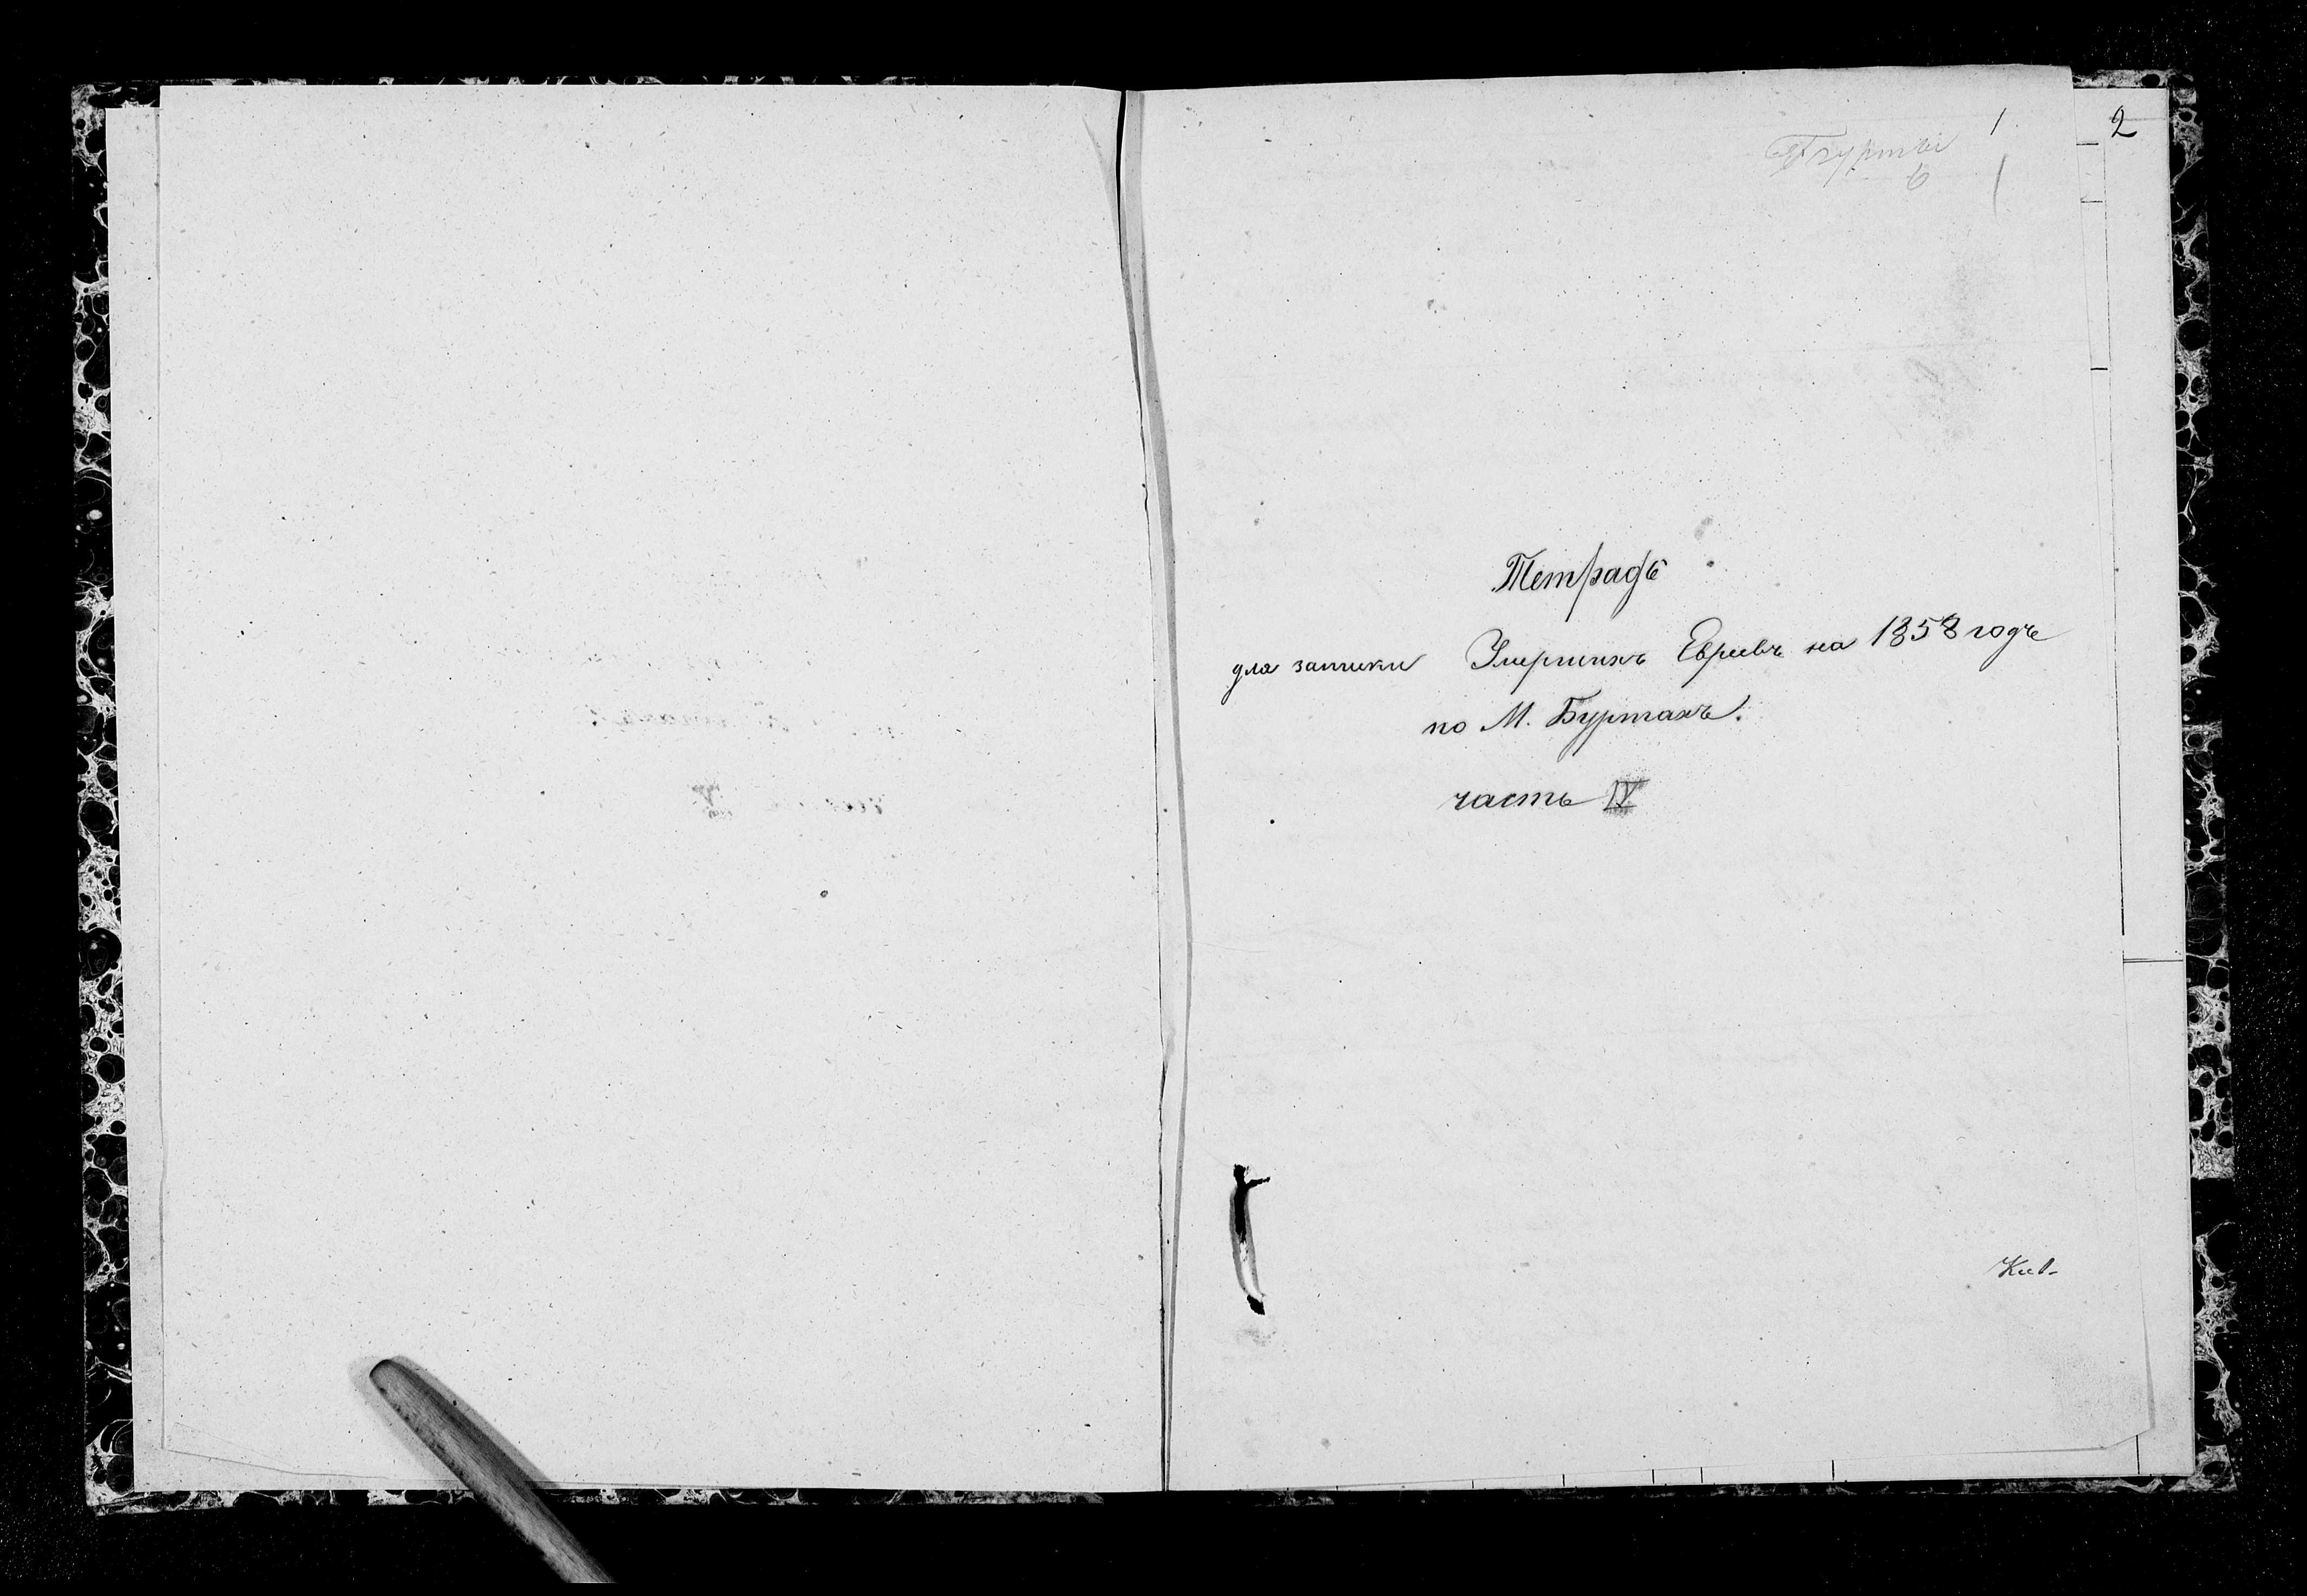 1
2
Бурты
6
Тетрадь
для записки Умершихъ Евреевъ на 1858 годъ
по М. Буртахъ.
часть IV